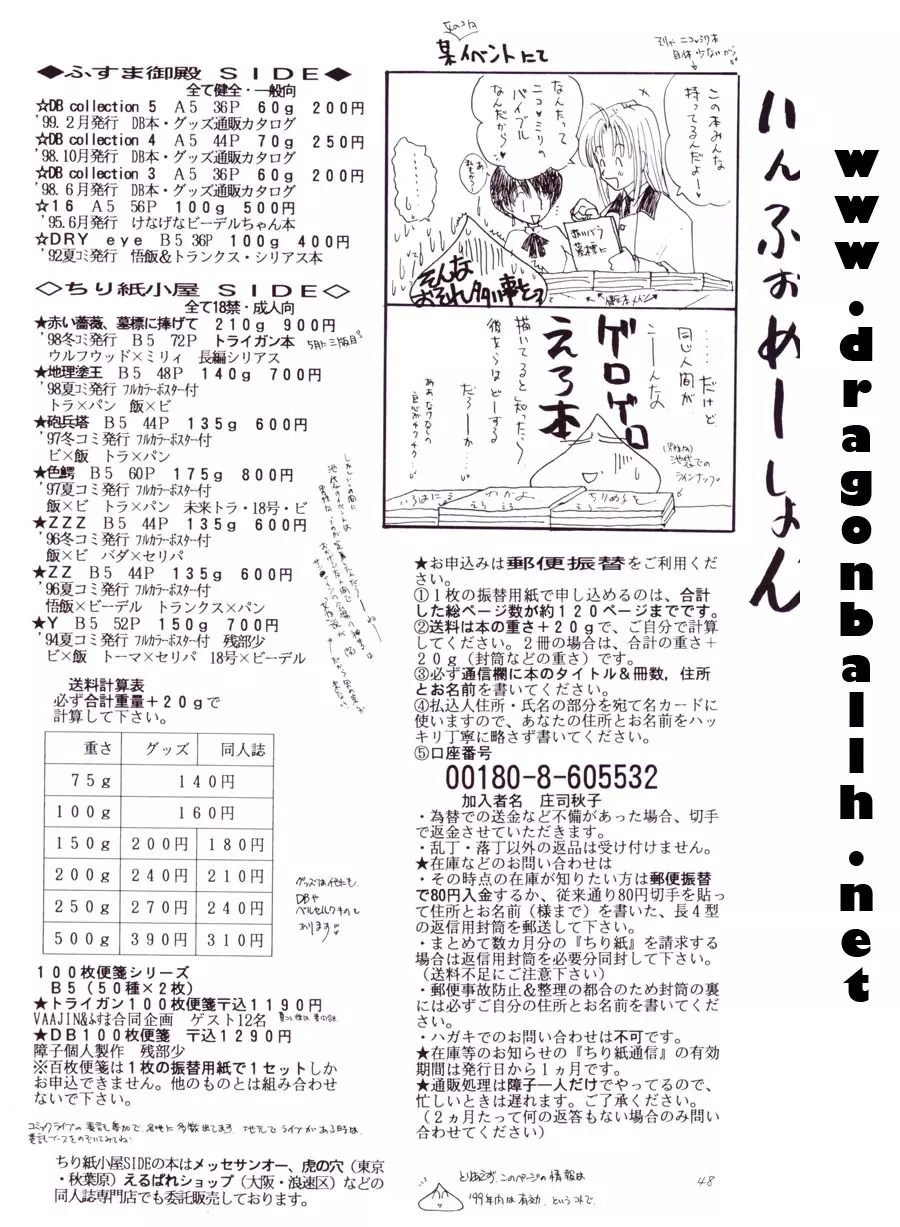 いんふぉめーしょん
www.dragonballh.net
◆ふすま御殿 SIDE◆
全て健全・一般向
☆DB collection 5 A5 36P 60g 200円
'99.2月発行 DB本・グッズ通販カタログ
☆DB collection 4 A5 44P 70g 250円
'98.10月発行 DB本・グッズ通販カタログ
☆DB collection 3 A5 36P 60g 200円
'98.6月発行 DB本・グッズ通販カタログ
☆16 A5 56P 100g 500円
'95.6月発行 けなげなビーデルちゃん本
☆DRY eye B5 36P 100g 400円
'92夏コミ発行 悟飯&トランクス・シリアス本
◇ちり紙小屋 SIDE◇
全て18禁・成人向
★赤い薔薇、墓標に捧げて 210g 900円
'98冬コミ発行 B5 72P トライガン本 5月に三版目
ウルフウッド×ミリィ 長編シリアス
★地理塗王 B5 48P 140g 700円
'98夏コミ発行 フルカラーポスター付
トラ×パン 飯×ビ
★砲兵塔 B5 44P 135g 600円
'97冬コミ発行 フルカラーポスター付
ビ×飯 トラ×パン
★色鰐 B5 60P 175g 800円
'97夏コミ発行 フルカラーポスター付
飯×ビ トラ×パン 未来トラ・18号・ビ
★ZZZ B5 44P 135g 600円
'96冬コミ発行 フルカラーポスター付
飯×ビ バダ×セリパ
★ZZ B5 44P 135g 600円
'96夏コミ発行 フルカラーポスター付
悟飯×ビーデル トランクス×パン
★Y B5 52P 150g 700円
'94夏コミ発行 フルカラーポスター付 残部少
ビ×飯 トーマ×セリパ 18号×ビーデル
送料計算表
必ず合計重量+20gで
計算して下さい。
重さ グッズ 同人誌
75g 140円
100g 160円
150g 200円 180円
200g 240円 210円
250g 270円 240円
500g 390円 310円
グッズは他にも
DBや
ベルセルクもの
あります
100枚便箋シリーズ
B5(50種×2枚)
★トライガン100枚便箋〒込1190円
VAAJIN&ふすま合同企画 ゲスト12名
★DB100枚便箋 〒込1290円
障子個人製作 残部少
※百枚便箋は1枚の振替用紙で1セットしか
お申込できません。他のものとは組み合わせ
ないで下さい。
コミックライブの委託参加で、各地に多数出てます 地元でライブがある時は、
委託ブースをのぞいてみてね
ちり紙小屋SIDEの本はメッセサンオー、虎の穴(東京
・秋葉原)えるぱれショップ(大阪・浪速区)などの
同人誌専門店でも委託販売しております。
某イベントにて
この本みんな
持ってるんだよー
なんたって
ニコ♥ミリの
バイブル
なんだから
赤いバラ
墓標に
そんな
おそれ多い事を
……だけど
同じ人間が
こーんなの
ゲロゲロ
えろ本
描いてると知ったら
彼女らはどーする
だろーか
池袋での
ラインナップ
★お申込みは郵便振替をご利用くだ
さい。
①1枚の振替用紙で申し込めるのは、合計
した総ページ数が約120ページまでです。
②送料は本の重さ+20gで、ご自分で計算
してください。2冊の場合は、合計の重さ+
20g(封筒などの重さ)です。
③必ず通信欄に本のタイトル&冊数,住所
とお名前を書いてください。
④払込人住所・氏名の部分を宛て名カードに
使いますので、あなたの住所とお名前をハッ
キリ丁寧に略さず書いてください。
⑤口座番号
00180-8-605532
加入者名 庄司秋子
・為替での送金など不備があった場合、切手
で返金させていただきます。
・乱丁・落丁以外の返品は受け付けません。
★在庫などのお問い合わせは
・その時点の在庫が知りたい方は郵便振替
で80円入金するか、従来通り80円切手を貼っ
て住所とお名前(様まで)を書いた、長4型
の返信用封筒を郵送して下さい。
・まとめて数カ月分の『ちり紙』を請求する
場合は返信用封筒を必要分同封して下さい。
(送料不足にご注意下さい)
・郵便事故防止&整理の都合のため封筒の裏
には必ずご自分の住所とお名前を書いてくだ
さい。
・ハガキでのお問い合わせは不可です。
★在庫等のお知らせの『ちり紙通信』の有効
期間は発行日から1ヵ月です。
★通販処理は障子一人だけでやってるので、
忙しいときは遅れます。ご了承ください。
(2ヵ月たって何の返答もない場合のみ問い
合わせてください)
とりあえず、このページの情報は
'99年内は有効、というコトで。
48